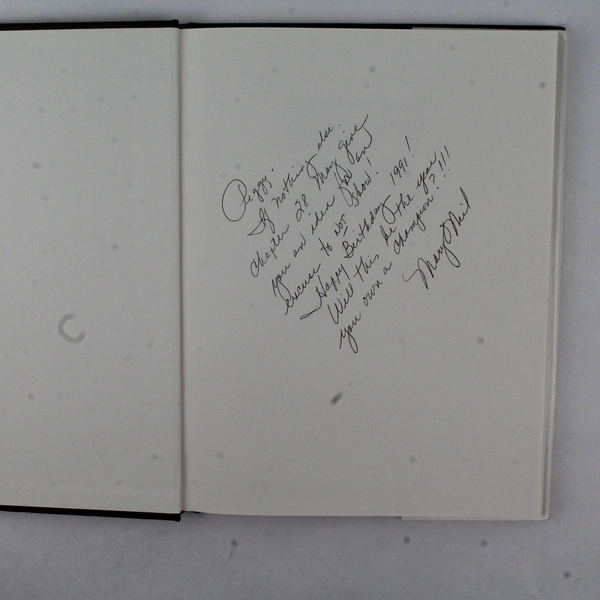 Peggy.
If nothing else.
chapter 28 May give
you an idea for an
excuse to not show!
Happy Birthday 1991!
Will this be the year
you own a champion?!!!
Mary & Neil